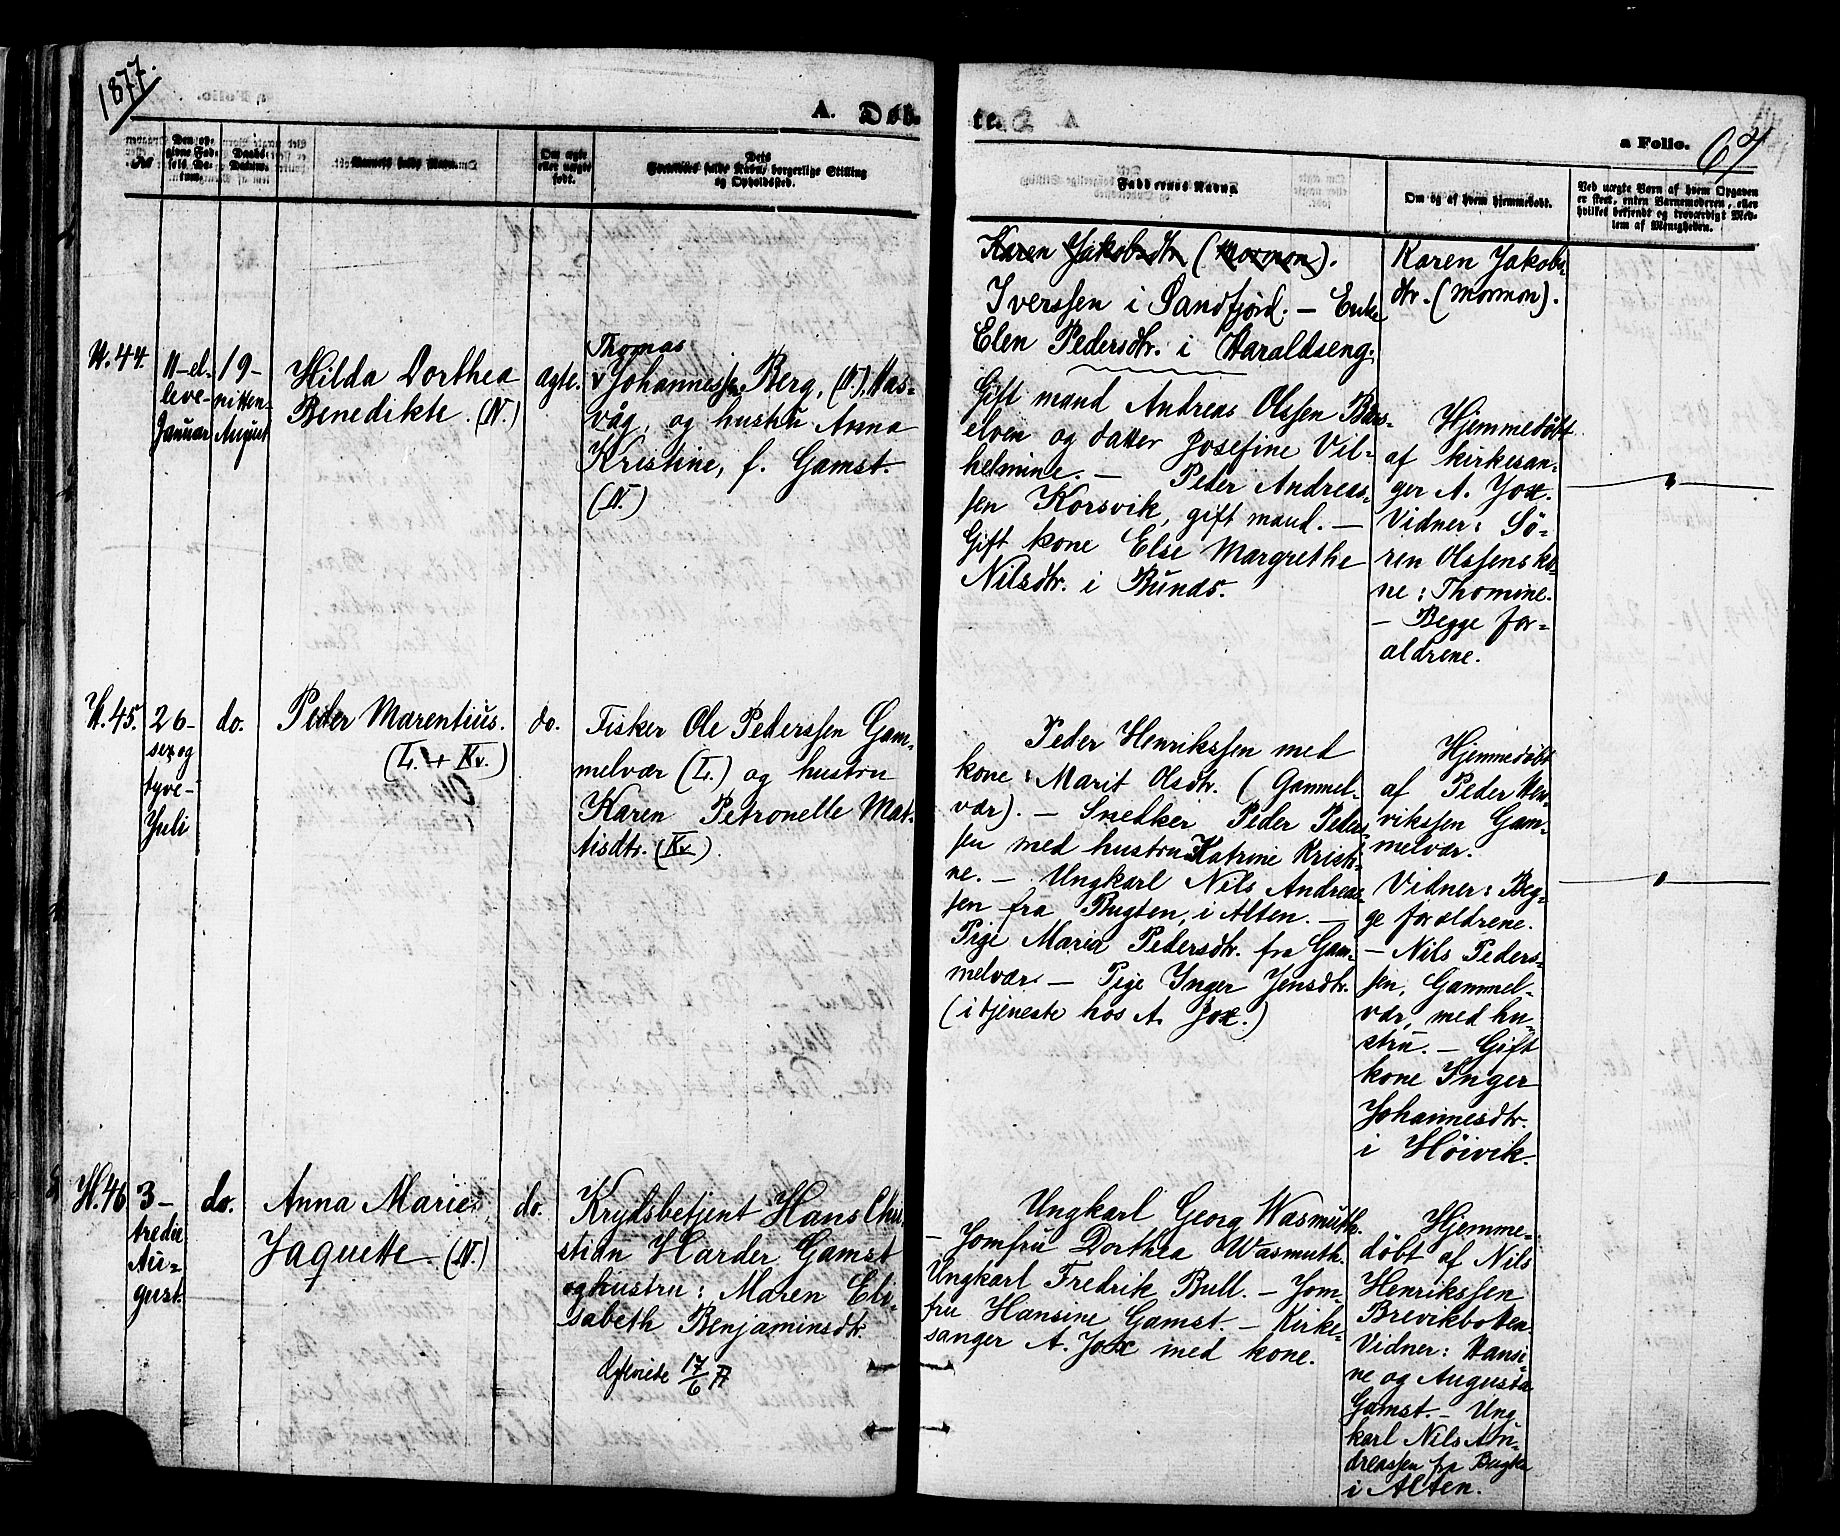 1877.
A. Døb-
te.
a Folio. 67
No
Den opgivne Fødsels Datum.
Daabs-Datum.
Barnets fulde Navn.
Om ægte eller uægte født.
Forældres fulde Navn, borgerlige Stilling og Opholdssted.
Faddernes Navne.
Om og af hvem hjemmedøbt.
Ved uægte Børn af hvem Opgaven er skeet, enten Barnemoderen, eller hvilket bekjendt og troværdigt Medlem af Menigheden.
Karen Jakobsdtr (Mormon).
Iverssen i Sandfjord. — Enke
Elen Pedersdtr. i Haraldseng.
Karen Jakobs-
dtr. (Mormon).
H. 44.
11-el-
leve-
Januar
19-
nitten-
August
Hilda Dorthea
Benedikte. (N.)
ægte.
Thomas
Johannessen Berg, (N.), Has-
våg, og hustru Anna
Kristine, f. Gamst.
(N.)
Gift mand Andreas Olssen Børs-
elven og datter Josefine Vil-
helmine. — Peder Andreas-
sen Korsvik, gift mand. —
Gift kone Else Margrethe
Nilsdtr. i Bunds.
Hjemmedøbt
af kirkesan-
ger A. Jox.
Vidner: Sö-
ren Olssens ko-
ne: Thomine.
— Begge for-
ældrene.
H. 45.
26-
sex og
tyve-
Juli
do.
Peder Marentius.
(L. + Kv.)
do.
Fisker Ole Pederssen Gam-
melvær (L.) og hustru
Karen Petronelle Mat-
tisdtr. (Kv.)
Peder Henrikssen med
kone: Marit Olsdtr. (Gammel-
vær). — Snedker Peder Peders-
sen med hustru Katrine Kristi-
ne. — Ungkarl Nils Andreas-
sen fra Bugten, i Alten. —
Pige Maria Pedersdtr. fra Gam-
melvær — Pige Inger Jensdtr.
(i tjeneste hos A. Jox.)
Hjemmedøbt
af Peder Hen-
rikssen Gam-
melvær.
Vidner: Beg-
ge forældrene.
— Nils Peders-
sen, Gammel-
vær, med hu-
stru. — Gift
kone Inger
Johannesdtr.
i Höivik.
H. 46
3-
tredie
Au-
gust.
do.
Anna Marie
Jaquette. (N.)
do.
Krydsbetjent Hans Chri-
stian Harder Gamst
og hustru: Maren Eli-
sabeth Benjaminsdtr.
17/6
Ungkarl Georg Wasmuth.
— Jomfru Dorthea Wasmuth.
Ungkarl Fredrik Bull. — Jom-
fru Hansine Gamst. — Kirke-
sanger A. Jox med kone.
Hjemme-
döbt af Nils
Henrikssen
Brevikbotten.
Vidner: Hansi-
ne og Augusta
Gamst. — Ung-
karl Nils An-
dreassen fra Bugten
i Alten.